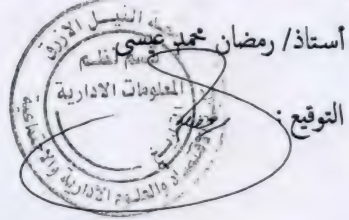 أستاذ/ رمضان محمد عيسى
التوقيع :
النيل الازرق
قسم نظم
المعلومات الادارية
والعلوم الادارية